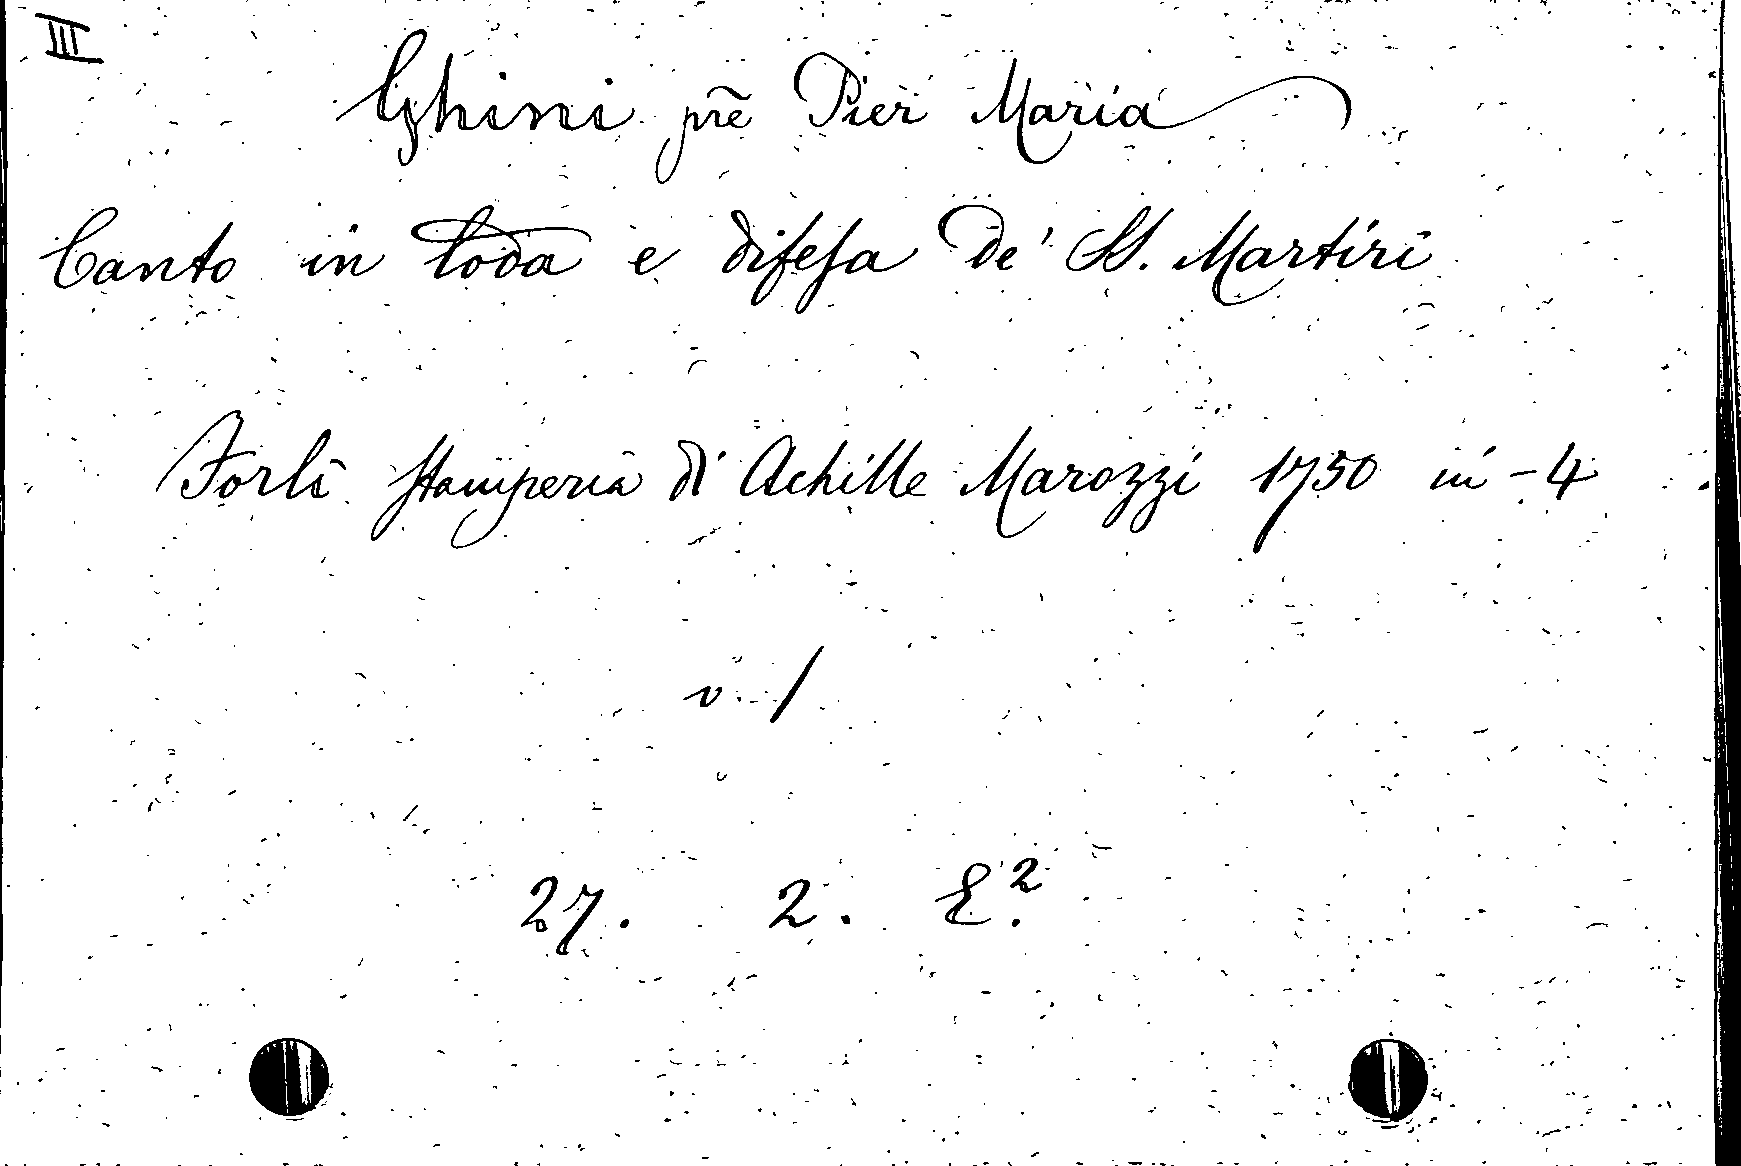 III
Ghini prẽ Pier Maria
Canto in loda e difesa de' SS. Martiri
Forlì Stamperia di Achille Marozzi 1750 in-4
v. /
27. 2. E.²